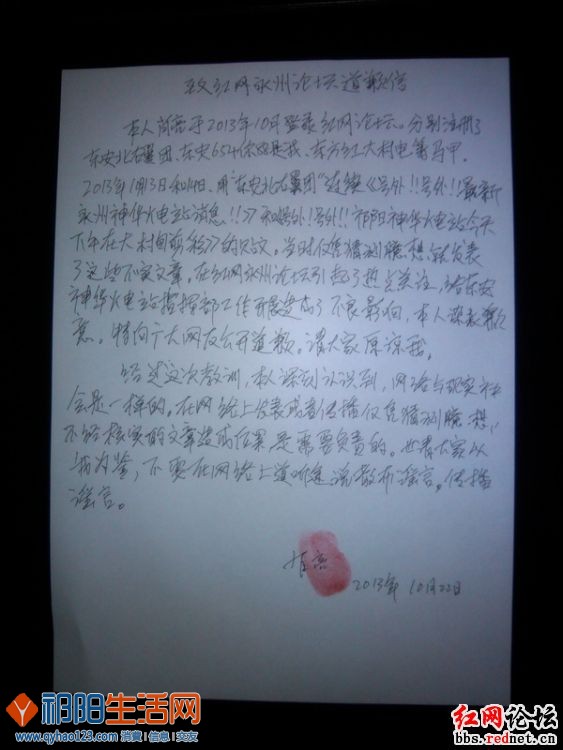 致红网永州论坛道歉信
本人 于2013年10月登录红网论坛。分别注册了
东安北右翼团、东安654 、东方红大村电筹马甲。
2013年10月3日和14日,用"东安北右翼团"连续《号外!!号外!!最新
永州神华火电站消息!!》和《号外!号外!!祁阳神华火电站今天
下午在大村甸前 》的贴文。当时仅凭猜测臆想,就发表
了这些不实文章。在红网永州论坛引起了热点关注,给东安
神华火电站指挥部工作开展造成了不良影响,本人深表歉
意。特向广大网友公开道歉。请大家原谅我。
经过这次教训,本人深刻认识到,网络与现实社
会是一样的。在网络上发表或者传播仅凭猜测臆想,
不经核实的文章造成后果是需要负责的。也希大家以
我为鉴,不要在网络上道听途说散布谣言。传播
谣言。
2013年 10月22日
祁阳生活网
www.qyhao123.com 消费|信息|交友
红网论坛
bbs.rednet.cn